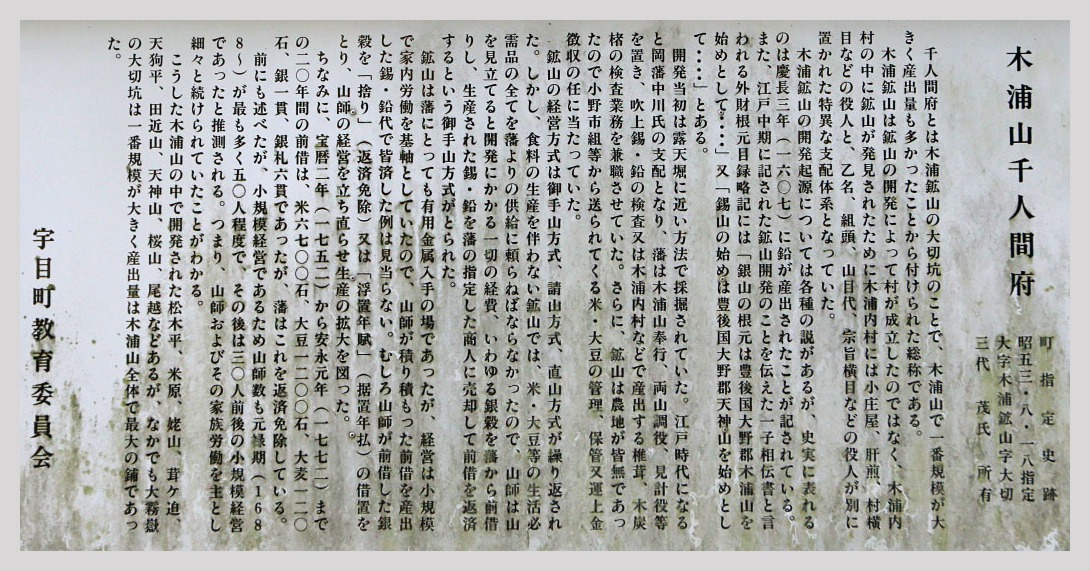 木浦山千人間府
町指定史跡
昭五三・八・一八指定
大字木浦鉱山字大切
三代茂氏所有
千人間府とは木浦鉱山の大切坑のことで、木浦山で一番規模が大
きく産出量も多かったことから付けられた総称である。
木浦鉱山は鉱山の開発によって村が成立したのではなく、木浦内
村の中に鉱山が発見されたために木浦内村には小庄屋、肝煎、村横
目などの役人と、乙名、組頭、山目代、宗旨横目などの役人が別に
置かれた特異な支配体系となっていた。
木浦鉱山の開発起源については各種の説があるが、史実に表れる
のは慶長三年(一六〇七)に鉛が産出されたことが記されている。
また、江戸中期に記された鉱山開発のことを伝えた一子相伝書と言
われる外財根元目録略記には「銀山の根元は豊後国大野郡木浦山を
始めとして・・・」又「錫山の始めは豊後国大野郡天神山を始めとし
て・・・・」とある。
開発当初は露天堀に近い方法で採掘されていた。江戸時代になる
と岡藩中川氏の支配となり、藩は木浦山奉行、両山調役、見計役等
を置き、吹上錫・鉛の検査又は木浦内村などで産出する椎茸、木炭
楮の検査業務を兼職させていた。さらに、鉱山は農地が皆無であっ
たので小野市組等から送られてくる米・大豆の管理、保管又運上金
徴収の任に当たっていた。
鉱山の経営方式は御手山方式、請山方式、直山方式が繰り返され
た。しかし、食料の生産を伴わない鉱山では、米・大豆等の生活必
需品の全てを藩よりの供給に頼らねばならなかったので、山師は山
を見立てると開発にかかる一切の経費、いわゆる銀穀を藩から前借
りし、生産された錫・鉛を藩の指定した商人に売却して前借を返済
するという御手山方式がとられた。
鉱山は藩にとっても有用金属入手の場であったが、経営は小規模
で家内労働を基軸としていたので、山師が積り積もった前借を産出
した錫・鉛代で皆済した例は見当らない。むしろ山師が前借した銀
穀を「捨り」(返済免除)又は「浮置年賦」(据置年払)の借置を
とり、山師の経営を立ち直らせ生産の拡大を図った。
ちなみに、宝暦二年(一七五二)から安永元年(一七七二)まで
の二〇年間の前借は、米六七〇〇石、大豆一二〇〇石、大麦一二〇
石、銀一貫、銀札六貫であったが、藩はこれを返済免除している。
前にも述べたが、小規模経営であるため山師数も元禄期(168
8~)が最も多く五〇人程度で、その後は三〇人前後の小規模経営
であったと推測される。つまり、山師およびその家族労働を主とし
細々と続けられていたことがわかる。
こうした木浦山の中で開発された松木平、米原、姥山、茸ケ迫、
天狗平、田近山、天神山、桜山、尾越などあるが、なかでも大霧嶽
の大切坑は一番規模が大きく産出量は木浦山全体で最大の鋪であっ
た。
宇目町教育委員会